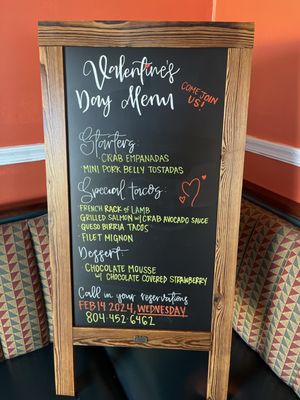 Valentine's
Day Menu
COME JOIN
US!
Starters
CRAB EMPANADAS
MINI PORK BELLY TOSTADAS
Special tacos:
FRENCH RACK OF LAMB
GRILLED SALMON W/ CRAB AVOCADO SAUCE
QUESO BIRRIA TACOS
FILET MIGNON
Dessert:
CHOCOLATE MOUSSE
W/ CHOCOLATE COVERED STRAWBERRY
Call in your reservations
FEB 14 2024, WEDNESDAY
804.452.6462